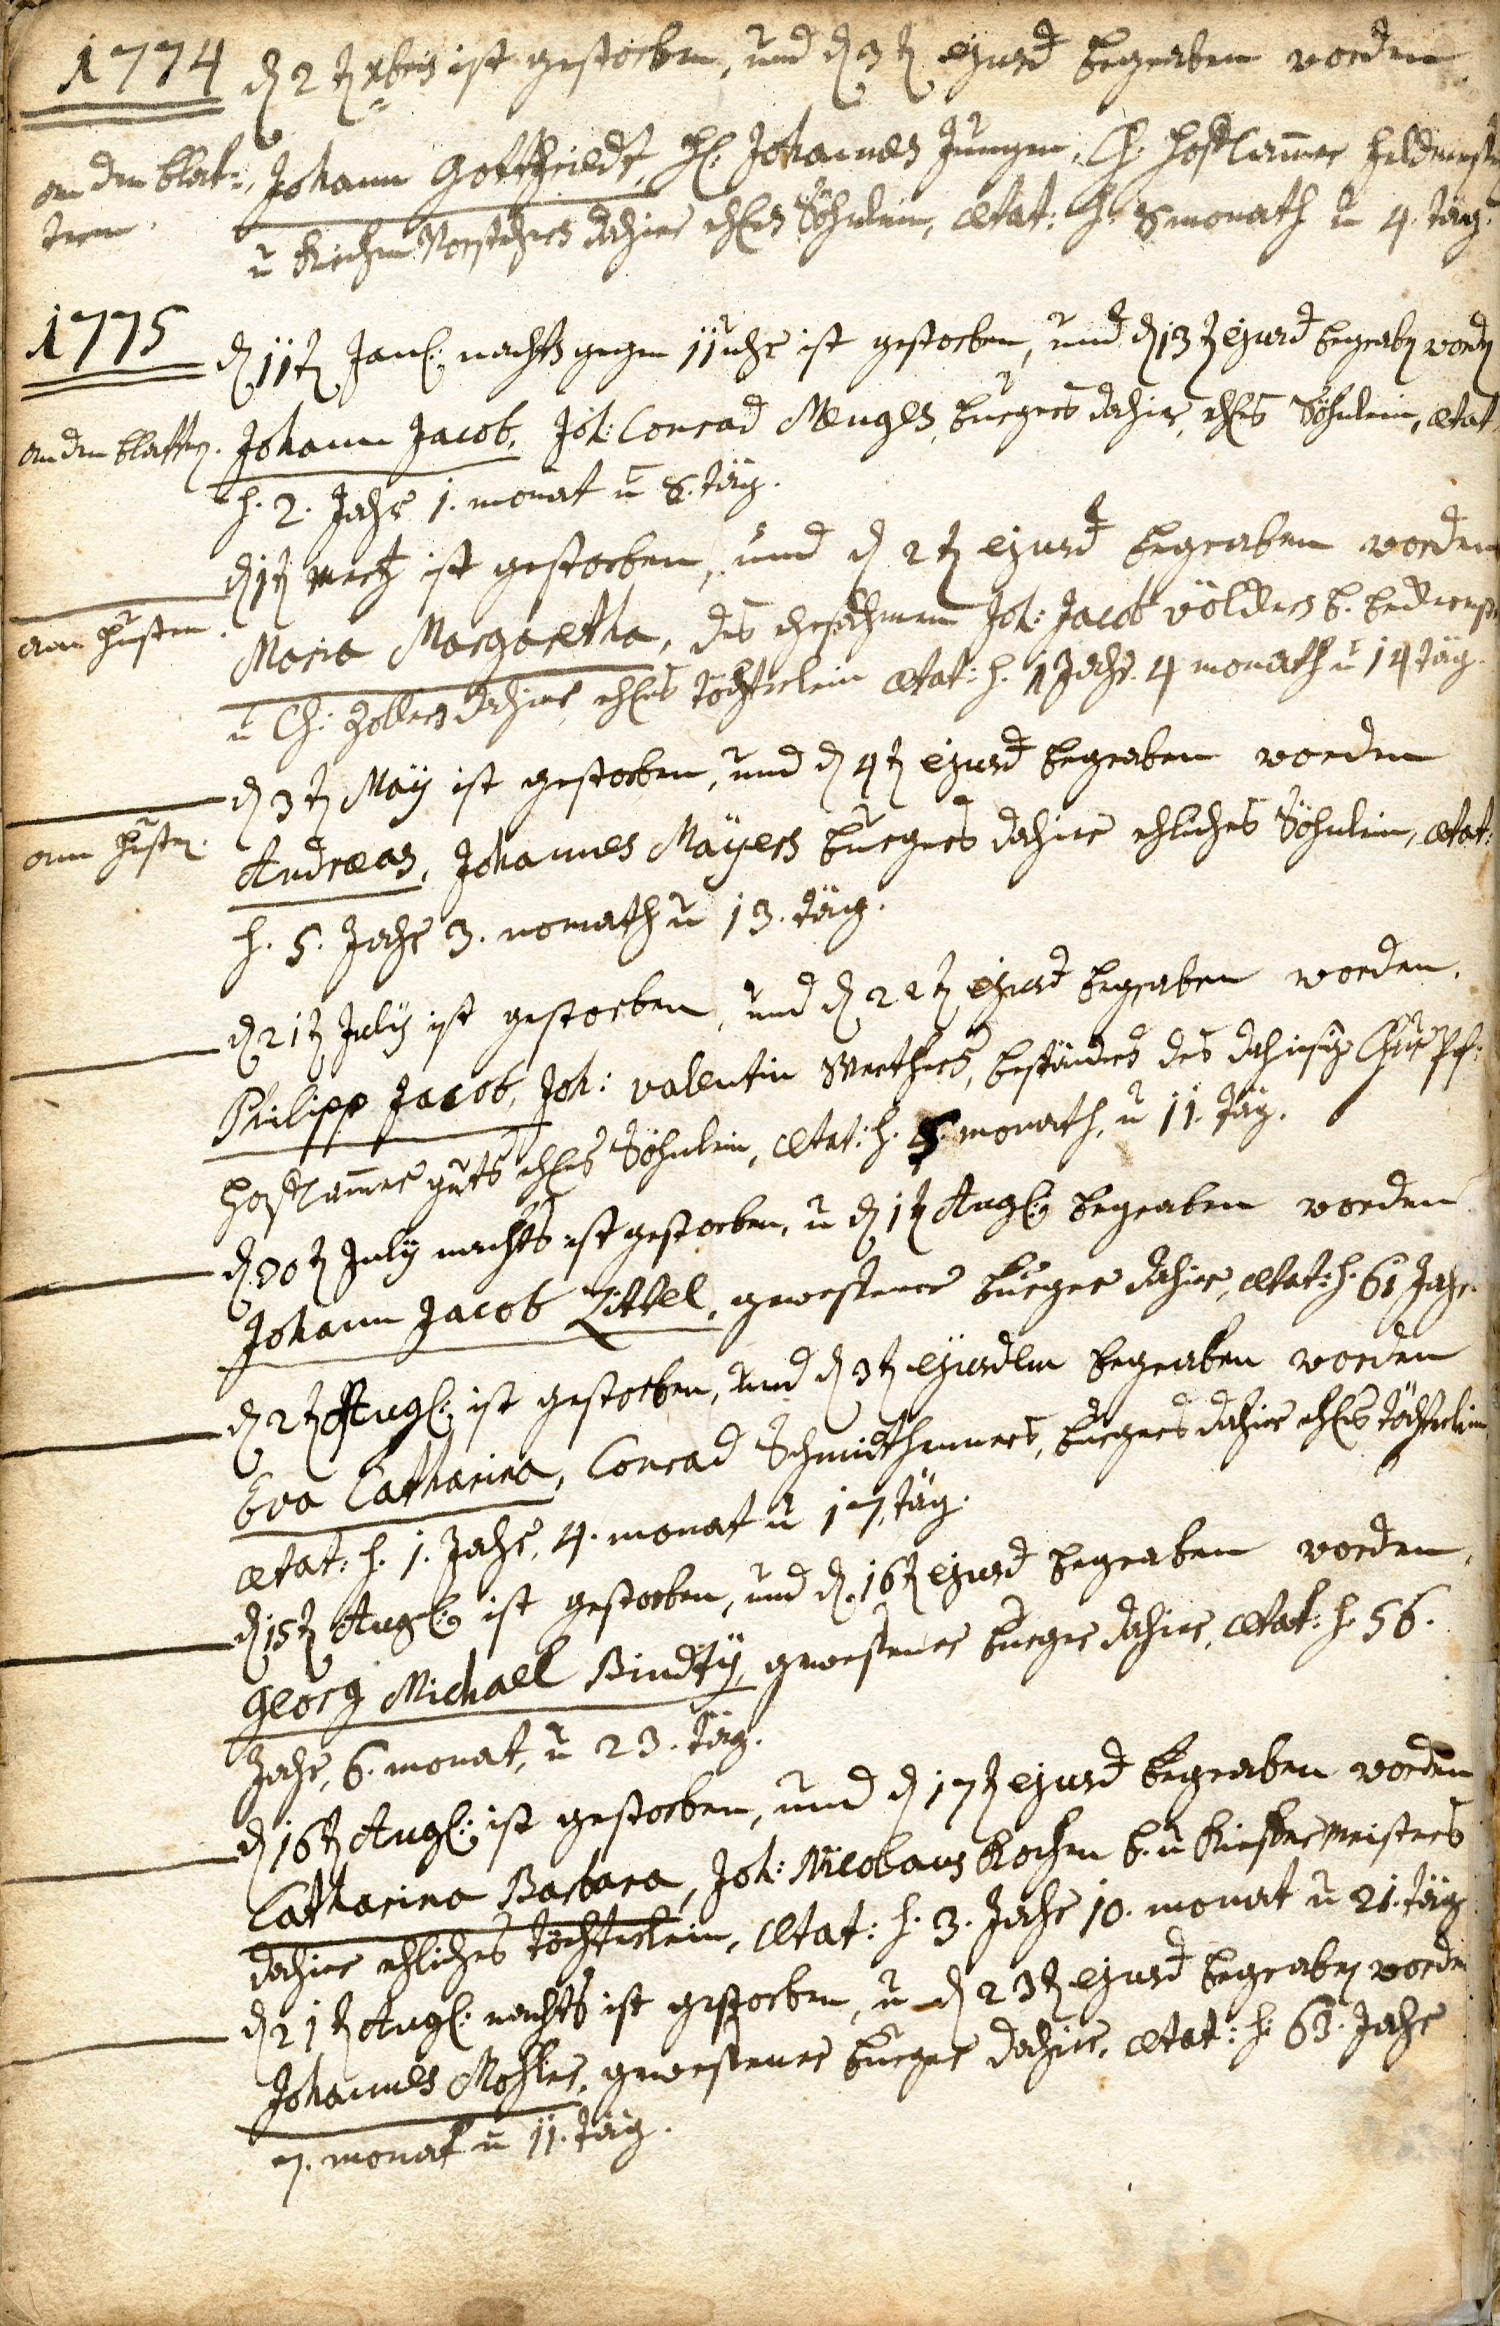 1774 d 2t xbris ist gestorben, und d 3t ejusd begraben worden
an den Blat- Johann Gottfriedt, H: Johannes Jungen, Ch: Hoffkammer
tern. u Kirchen Vorstehers dahier ehl Söhnlein, ætat: h. 8 monath u 4. täg.
1775 d 11t Jan: nachts gegen 11 uhr ist gestorben, und d 13t ejusd begrabn wordn
an den blattrn. Johann Jacob, Joh: Conrad Menges, burgers dahier, ehls Söhnlein, ætat
h. 2. Jahr 1. monat u 8. täg.
d 1t Mertz ist gestorben, und d 2t ejusd begraben worden
am husten. Maria Margaretha, des ehrsahmen Joh: Jacob Völckers b.
u Ch: Zollers dahier, ehls töchterlein ætat: h. 1 Jahr. 4 monath u 14 täg.
d 3t Maÿ ist gestorben, und d 4t ejusd begraben worden
am hustn. Andreas, Johannes Maÿers burgers dahier ehliches Söhnlein, ætat:
h. 5. Jahr 3. monath u 13. täg.
d 21t Julÿ ist gestorben, und d 22t ejusd begraben worden.
Philipp Jacob, Joh: Valentin Werthers, beständers des dahiesig Chur Pf:
Hoffkammer guts ehls Söhnlein, ætat: h. monath, u 11. täg.
d 30t Julÿ nachts ist gestorben, u d 1t Aug: begraben worden
Johann Jacob Zittel, gewesener burger dahier, ætat: h. 61 Jahr.
d 2t Aug: ist gestorben, und d 3t ejusdem begraben worden
Eva Catharina, Conrad Schmidthenners, burgers dahier ehls töchterlein
ætat: h. 1. Jahr, 4. monat u 17. täg.
d 15t Aug: ist gestorben, und d. 16t ejusd begraben worden,
Georg Michael Bindtÿ, gewesener burger dahier, ætat: h. 56.
Jahr, 6. monat, u 23. täg.
d 16t Aug: ist gestorben, und d 17t ejusd begraben worden
Catharina Barbara, Joh: Nicolaus Kochen b. u Kiefermeisters
dahier ehliches töchterlein, ætat: h. 3. Jahr 10. monat u 21. täg
d 21t Aug: nachts ist gestorben, u d 23t ejusd begrabn worden
Johannes Mohler, gewesener burger dahier, ætat: h. 63. Jahr
7. monat u 11. täg.